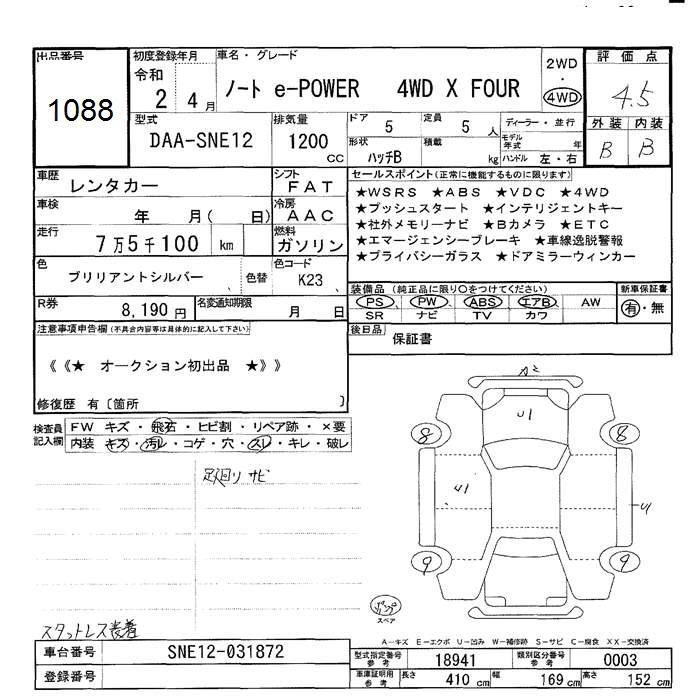 出品番号
1088
初度登録年月
令和
2 4月
車名・グレード
ノート e-POWER 4WD X FOUR
2WD
・
4WD
評価点
4.5
型式
DAA-SNE12
排気量
1200
CC
ドア
5
定員
5 人
ディーラー・並行
形状
ハッチB
積載
kg
モデル年式
年
ハンドル 左・右
外装 内装
B B
車歴
レンタカー
シフト
FAT
車検
年 月( 日)
冷房
AAC
走行
7万5千100 km
燃料
ガソリン
色
ブリリアントシルバー
色替
色コード
K23
セールスポイント(正常に機能するものに限ります)
★WSRS ★ABS ★VDC ★4WD
★プッシュスタート ★インテリジェントキー
★社外メモリーナビ ★Bカメラ ★ETC
★エマージェンシーブレーキ ★車線逸脱警報
★プライバシーガラス ★ドアミラーウィンカー
R券
8,190 円
名変通知期限
月 日
装備品 (純正品に限り○をつけてください)
PS PW ABS エアB AW
SR ナビ TV カワ
新車保証書
有・無
後日品
保証書
注意事項申告欄(不具合内容等は具体的に記入して下さい)
《《★ オークション初出品 ★》》
修復歴 有〔箇所 〕
検査員記入欄
FW キズ・飛石・ヒビ割・リペア跡・×要
内装 キズ・汚れ・コゲ・穴・スレ・キレ・破レ
足廻りサビ
U1
8 8
U1
U1
9 9
スペア
スタットレス装着
A-キズ E-エクボ U-凹み W-補修跡 S-サビ C-腐食 XX-交換済
車台番号
SNE12-031872
登録番号
型式指定番号
参考
18941
類別区分番号
参考
0003
車庫証明用
参考
長さ 410 cm 幅 169 cm 高さ 152 cm